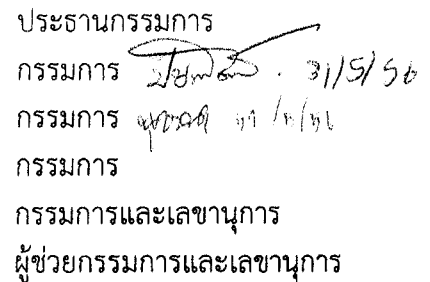 ประธานกรรมการ
กรรมการ 31/5/56
กรรมการ
กรรมการ
กรรมการและเลขานุการ
ผู้ช่วยกรรมการและเลขานุการ